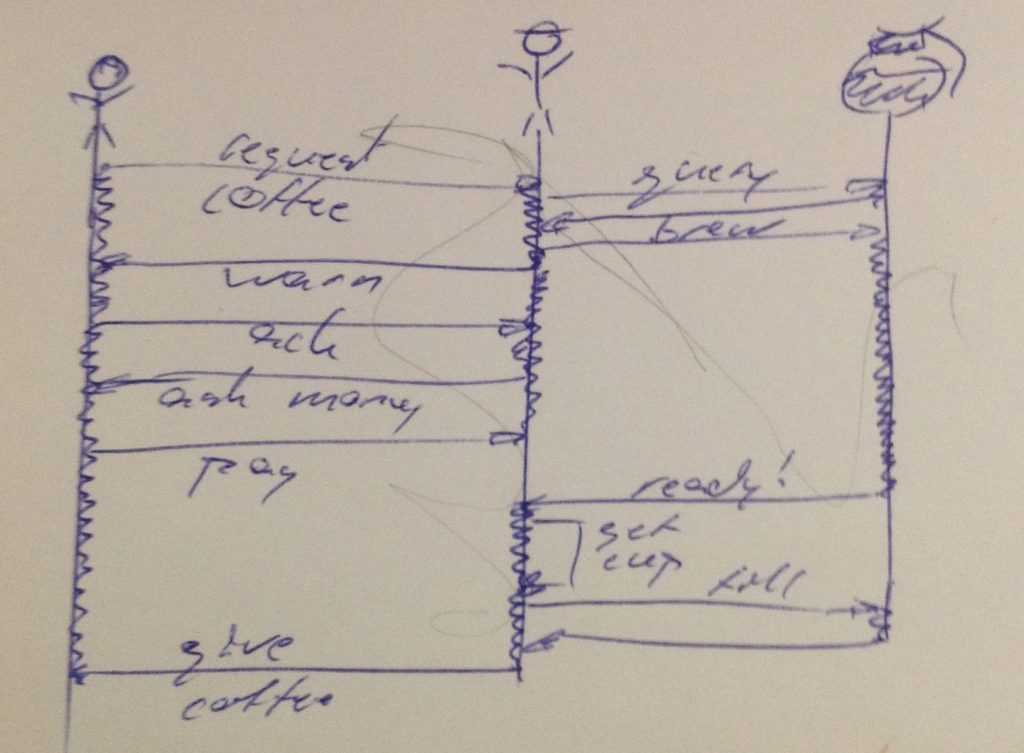 request
coffee
query
brew
warn
ack
ask money
pay
ready!
get
cup
fill
give
coffee